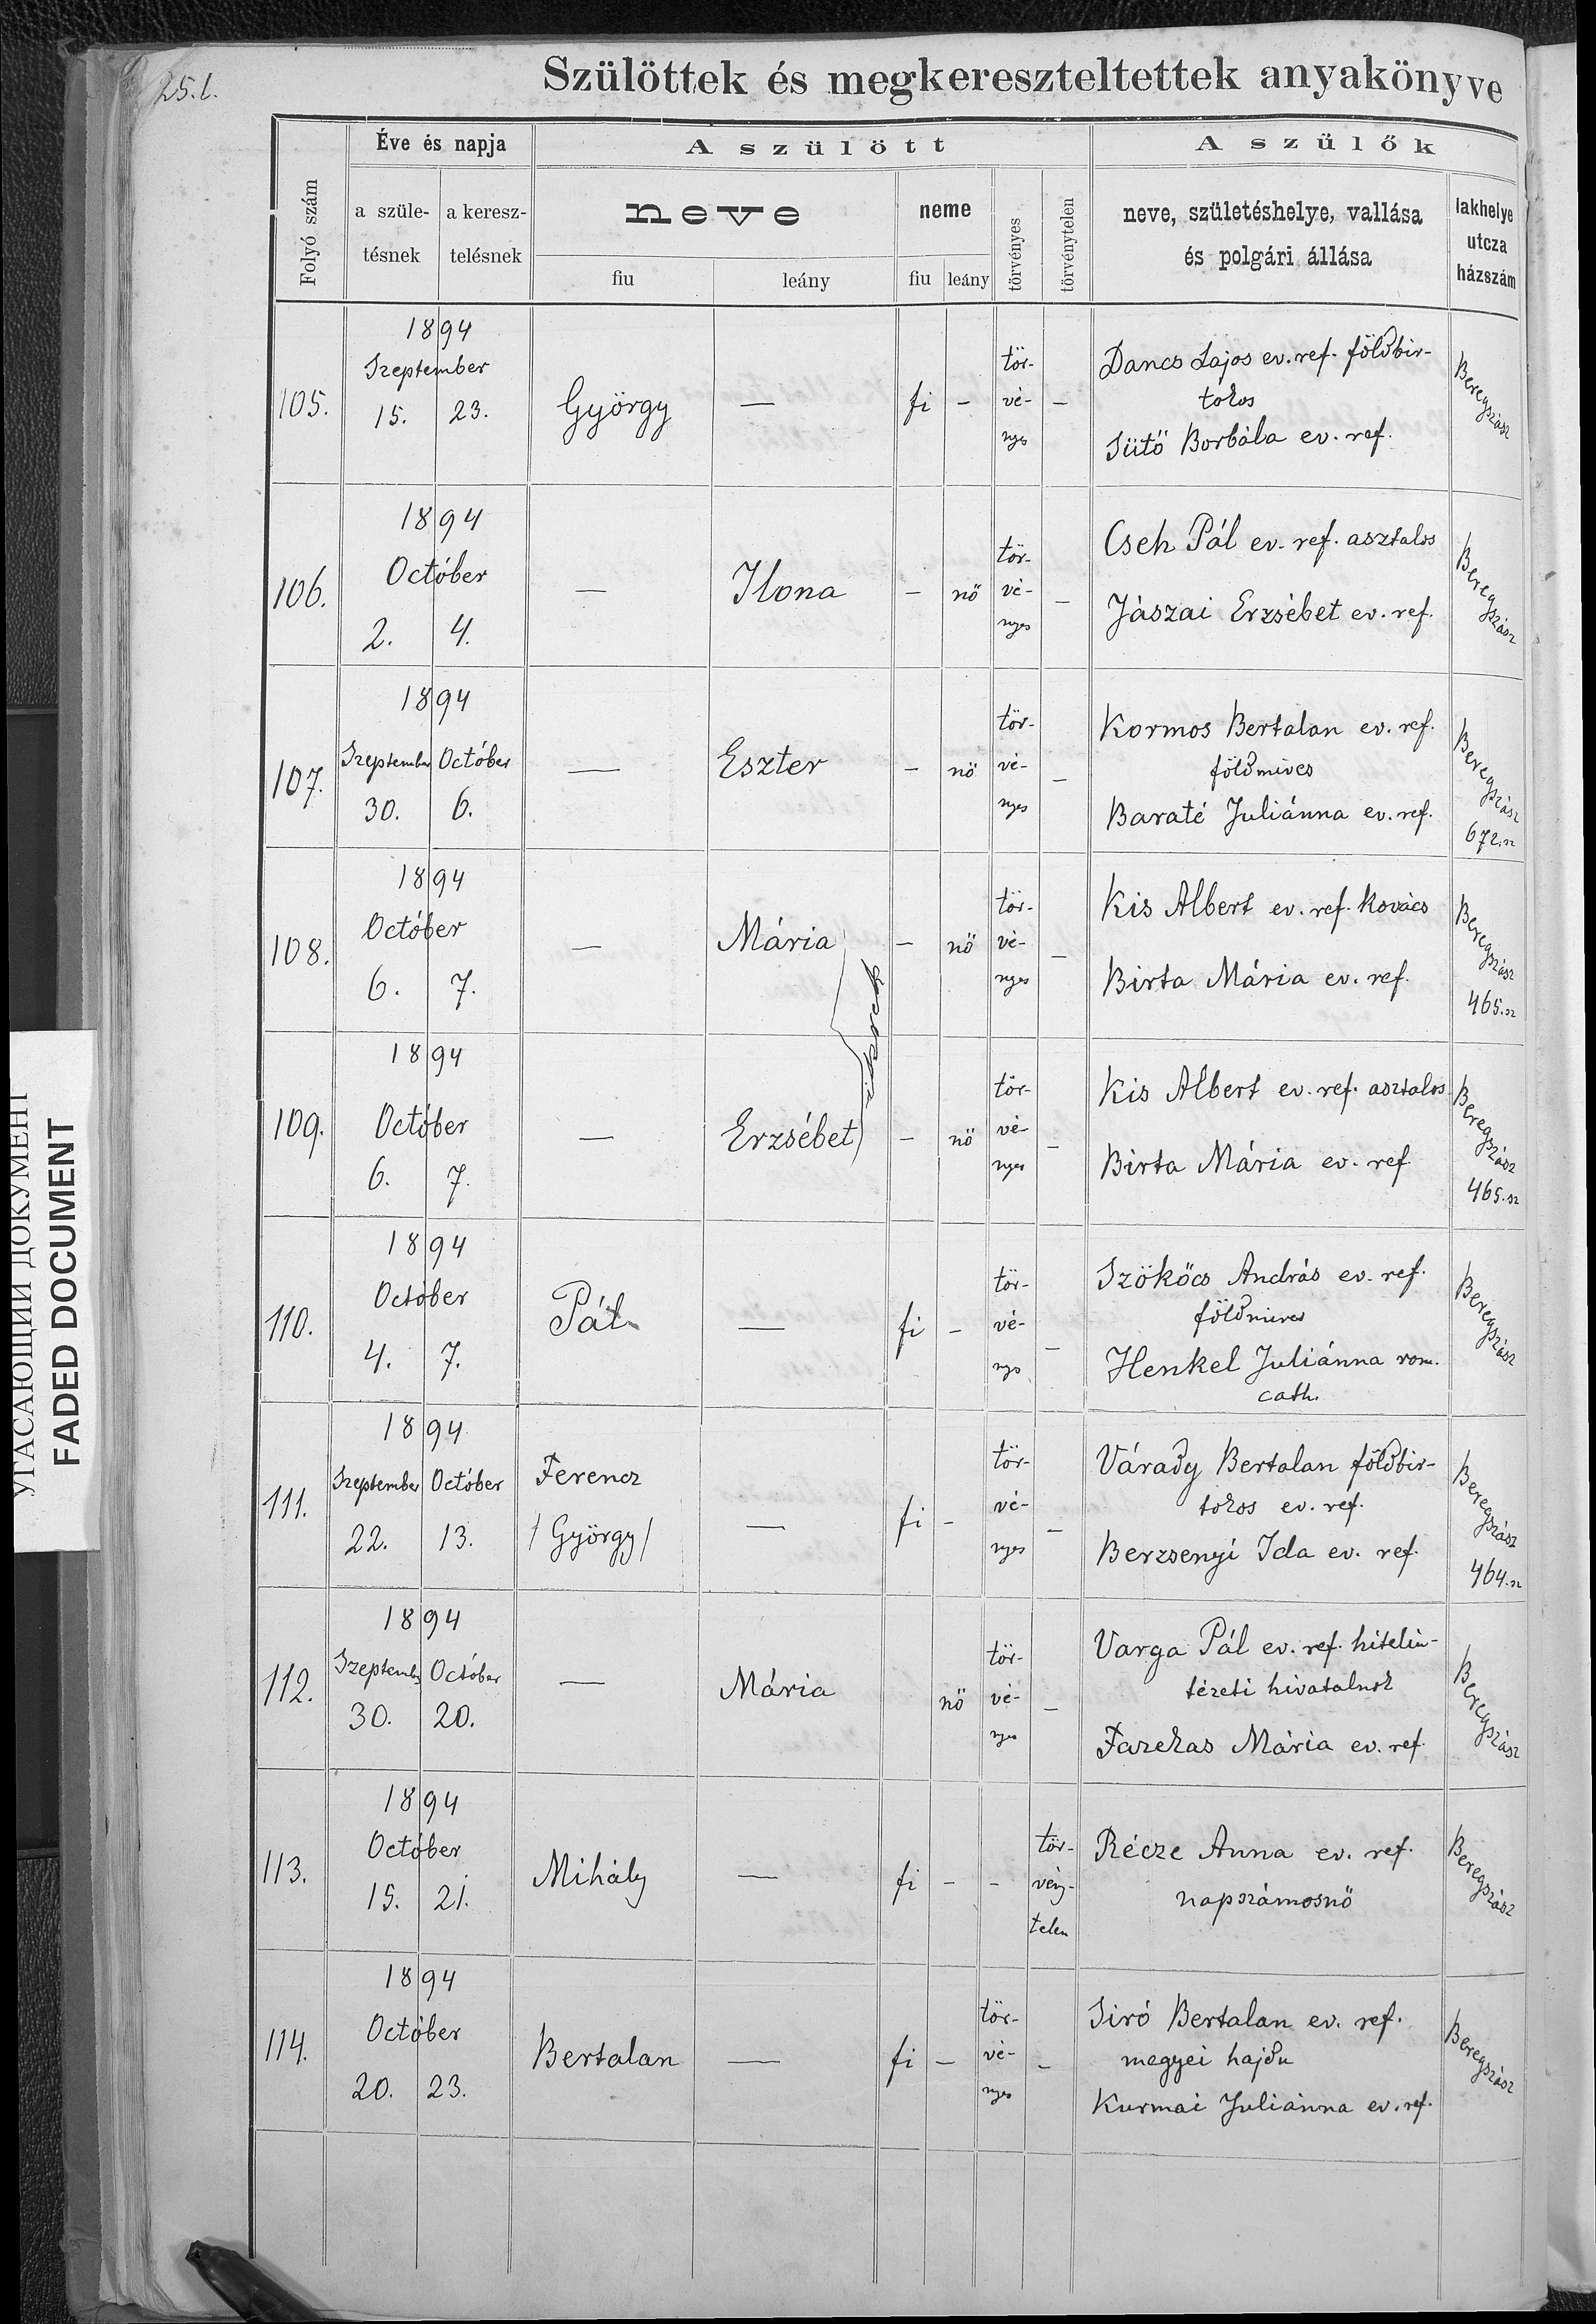 25.l.
Szülöttek és megkereszteltettek anyakönyve
Folyó szám
Éve és napja
a szüle-
tésnek
a keresz-
telésnek
A szülött
neve
fiu
leány
neme
fiu
leány
törvényes
törvénytelen
A szülők
neve, születéshelye, vallása
és polgári állása
lakhelye
utcza
házszám
1894
Szeptember
105. 15. 23. György — fi - tör-
vé-
nyes —
Dancs Lajos ev. ref. földbir-
tokos
Sütö Borbála ev. ref.
Beregszász
1894
Október
106. 2. 4. — Ilona — nö tör-
vé-
nyes —
Cseh Pál ev. ref. asztalos
Jászai Erzsébet ev. ref.
Beregszász
1894
Szeptember Octóber
107. 30. 6. — Eszter - nö tör-
vé-
nyes —
Kormos Bertalan ev. ref.
földmives
Baraté Juliánna ev. ref.
Beregszász
672.sz
1894
Octóber
108. 6. 7. — Mária — nö tör-
vé-
nyes —
Kis Albert ev. ref. kovács
Birta Mária ev. ref.
Beregszász
465.sz
ikrek
1894
Octóber
109. 6. 7. — Erzsébet — nö tör-
vé-
nyes —
Kis Albert ev. ref. asztalos
Birta Mária ev. ref
Beregszász
465.sz
1894
Octóber
110. 4. 7. Pál — fi - tör-
vé-
nys —
Szökőcs András ev. ref.
földmives
Henkel Juliánna rom.
cath.
Beregszász
1894
Szeptember Octóber
111. 22. 13. Ferencz
/György/ — fi - tör-
vé-
nyes —
Várady Bertalan földbir-
tokos ev. ref.
Berzsenyi Ida ev. ref.
Beregszász
464.sz
1894
Szeptemb Octóber
112. 30. 20. — Mária nö tör-
vé-
nyes —
Varga Pál ev. ref. hitelin-
tézeti hivatalnok
Fazekas Mária ev. ref.
Beregszász
1894
Octóber
113. 15. 21. Mihály — fi - - tör-
vény-
telen
Récze Anna ev. ref.
napszámosnö
Beregszász
1894
Octóber
114. 20. 23. Bertalan — fi — tör-
vé-
nyes —
Siró Bertalan ev. ref.
megyei hajdu
Kurmai Juliánna ev. ref.
Beregszász
УГАСАЮЩИЙ ДОКУМЕНТ
FADED DOCUMENT